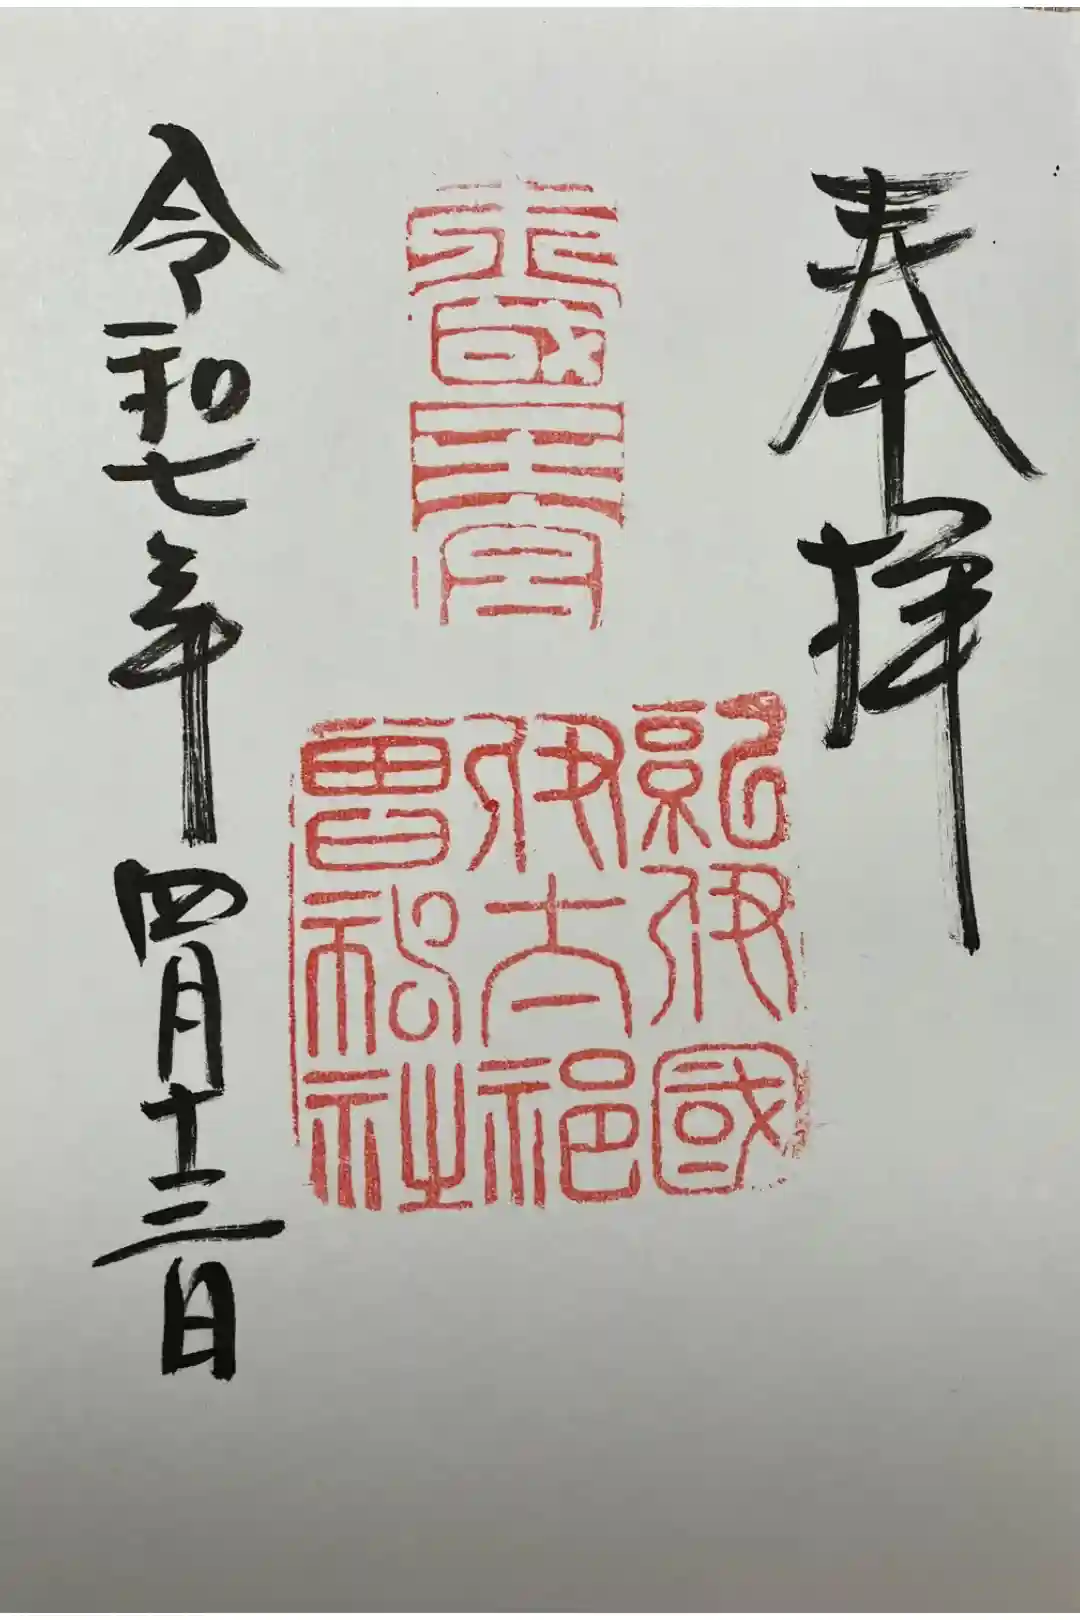 奉拝
紀伊國
伊太祁
曽神社
令和七年四月十三日